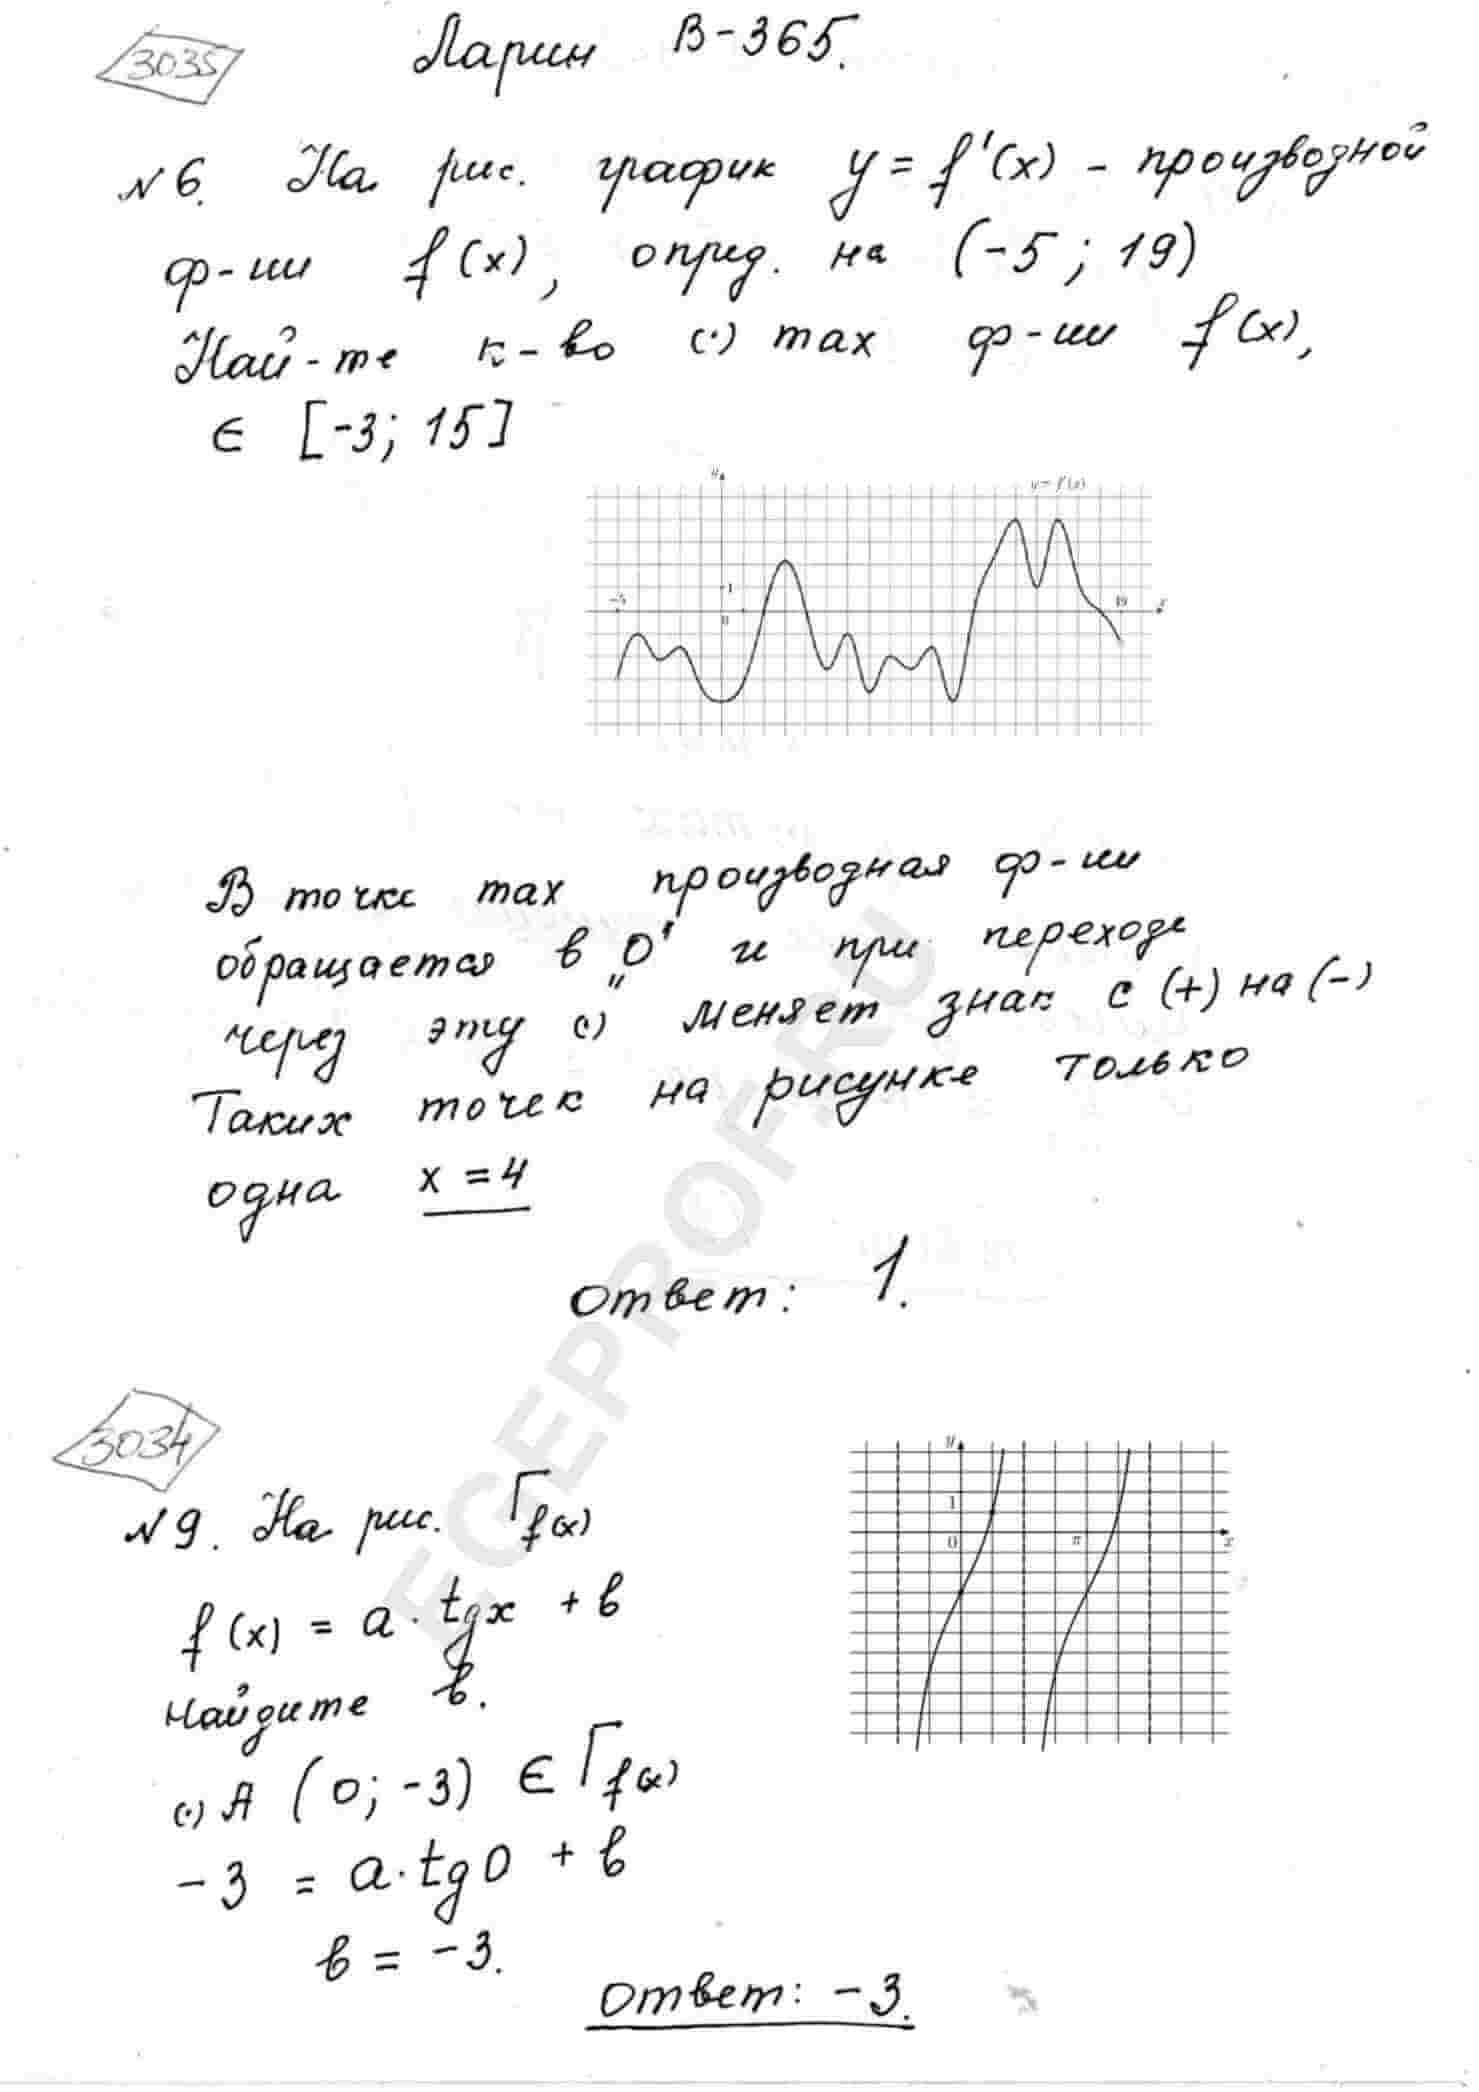 3035
Ларин В-365.
№6. На рис. график y = f'(x) - производной
ф-ии f(x), опред. на (-5; 19)
Най-те к-во (·) max ф-ии f(x),
∈ [-3; 15]
y
y = f'(x)
1
-5
0
19
x
В точке max производная ф-ии
обращается в „0" и при переходе
через эту (·) меняет знак с (+) на (-)
Таких точек на рисунке только
одна x = 4
Ответ: 1.
EGEPROF.RU
3034
№9. На рис. Γf(x)
f(x) = a · tgx + b
Найдите b.
(·) A (0; -3) ∈ Γf(x)
-3 = a · tg0 + b
b = -3.
Ответ: -3.
y
1
0
π
x